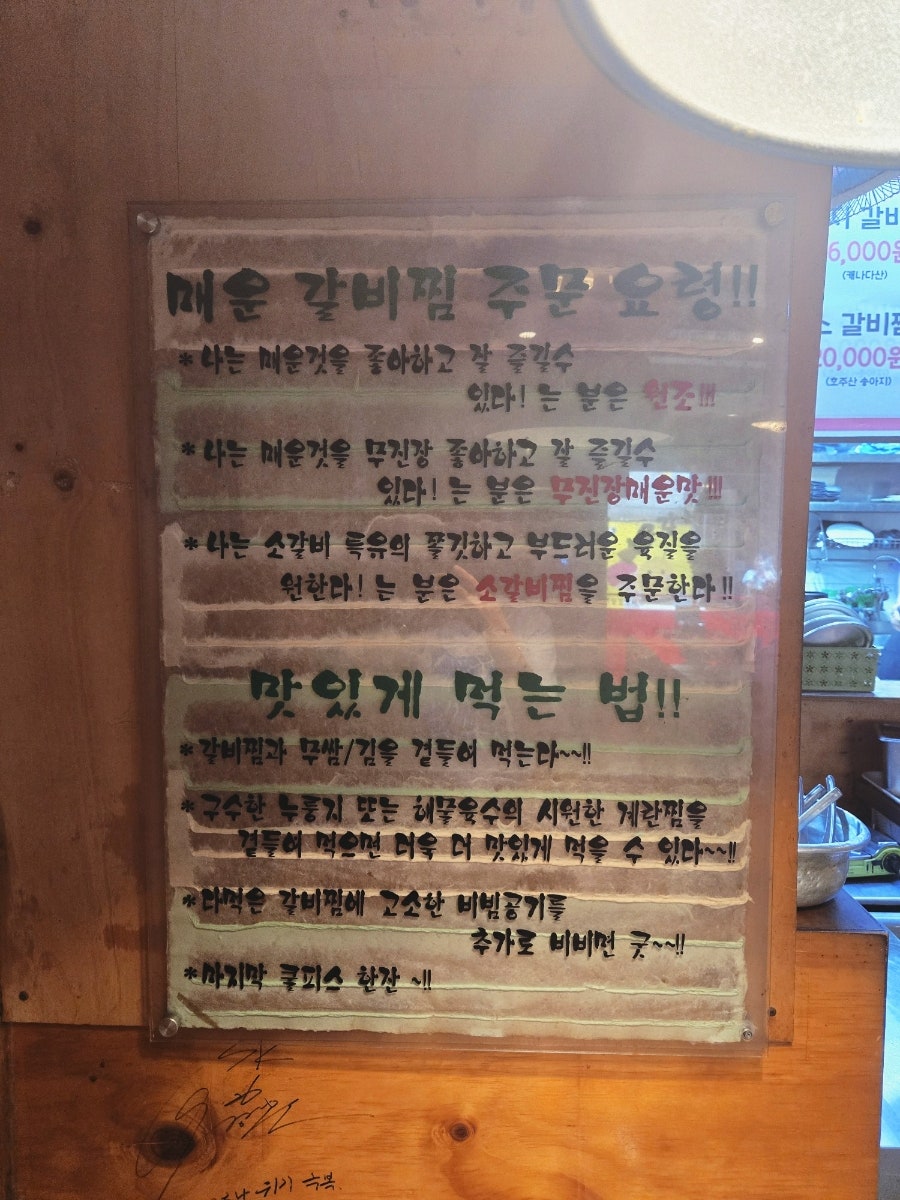 매운 갈비찜 주문 요령!!
*나는 매운것을 좋아하고 잘 즐길수
있다! 는 분은 원조!!!
*나는 매운것을 무진장 좋아하고 잘 즐길수
있다! 는 분은 무진장매운맛!!!
*나는 소갈비 특유의 쫄깃하고 부드러운 육질을
원한다! 는 분은 소갈비찜을 주문한다!!
맛있게 먹는 법!!
*갈비찜과 무쌈/김을 곁들여 먹는다~~!!
*구수한 누룽지 또는 해물육수의 시원한 계란찜을
곁들여 먹으면 더욱 더 맛있게 먹을 수 있다~~!!
*다먹은 갈비찜에 고소한 비빔공기를
추가로 비비면 굿~~!!
*마지막 쿨피스 한잔 ~!!
갈비
6,000원
(캐나다산)
갈비찜
20,000원
(호주산 송아지)
위기 극복